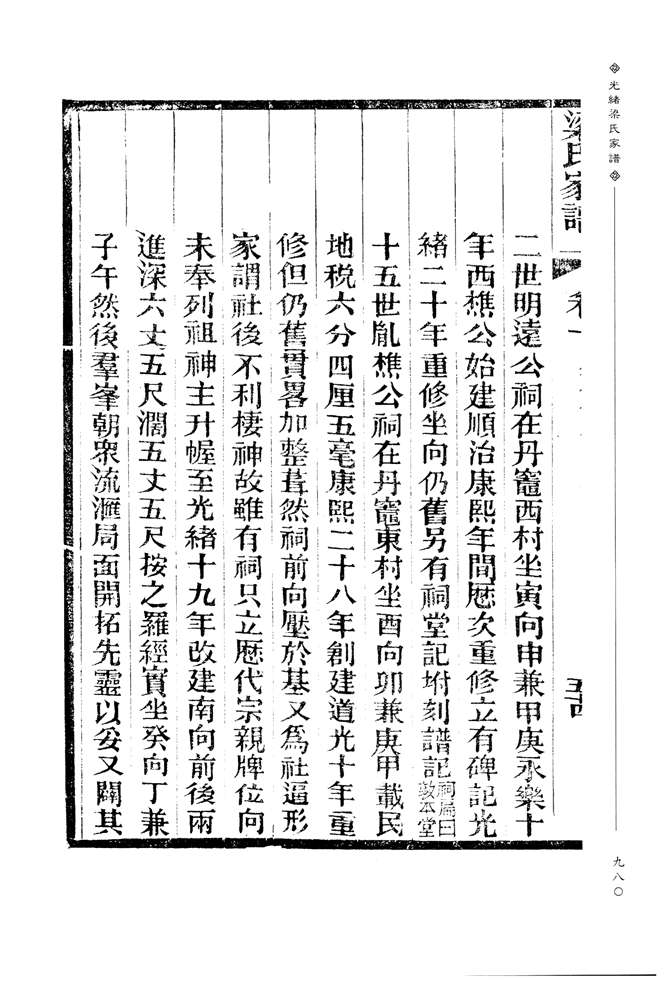 光緒梁氏家譜
九八〇
梁氏家譜 卷一 五十四
二世明遠公祠在丹竈西村坐寅向申兼甲庚永樂十
年西樵公始建順治康熙年間歷次重修立有碑記光
緒二十年重修坐向仍舊另有祠堂記坿刻譜記祠扁曰敦本堂
十五世胤樵公祠在丹竈東村坐酉向卯兼庚甲載民
地稅六分四厘五毫康熙二十八年創建道光十年重
修但仍舊貫畧加整葺然祠前向壓於基又爲社逼形
家謂社後不利棲神故雖有祠只立歷代宗親牌位向
未奉列祖神主升幄至光緒十九年改建南向前後兩
進深六丈五尺濶五丈五尺按之羅經實坐癸向丁兼
子午然後羣峯朝衆流滙局面開拓先靈以妥又闢其